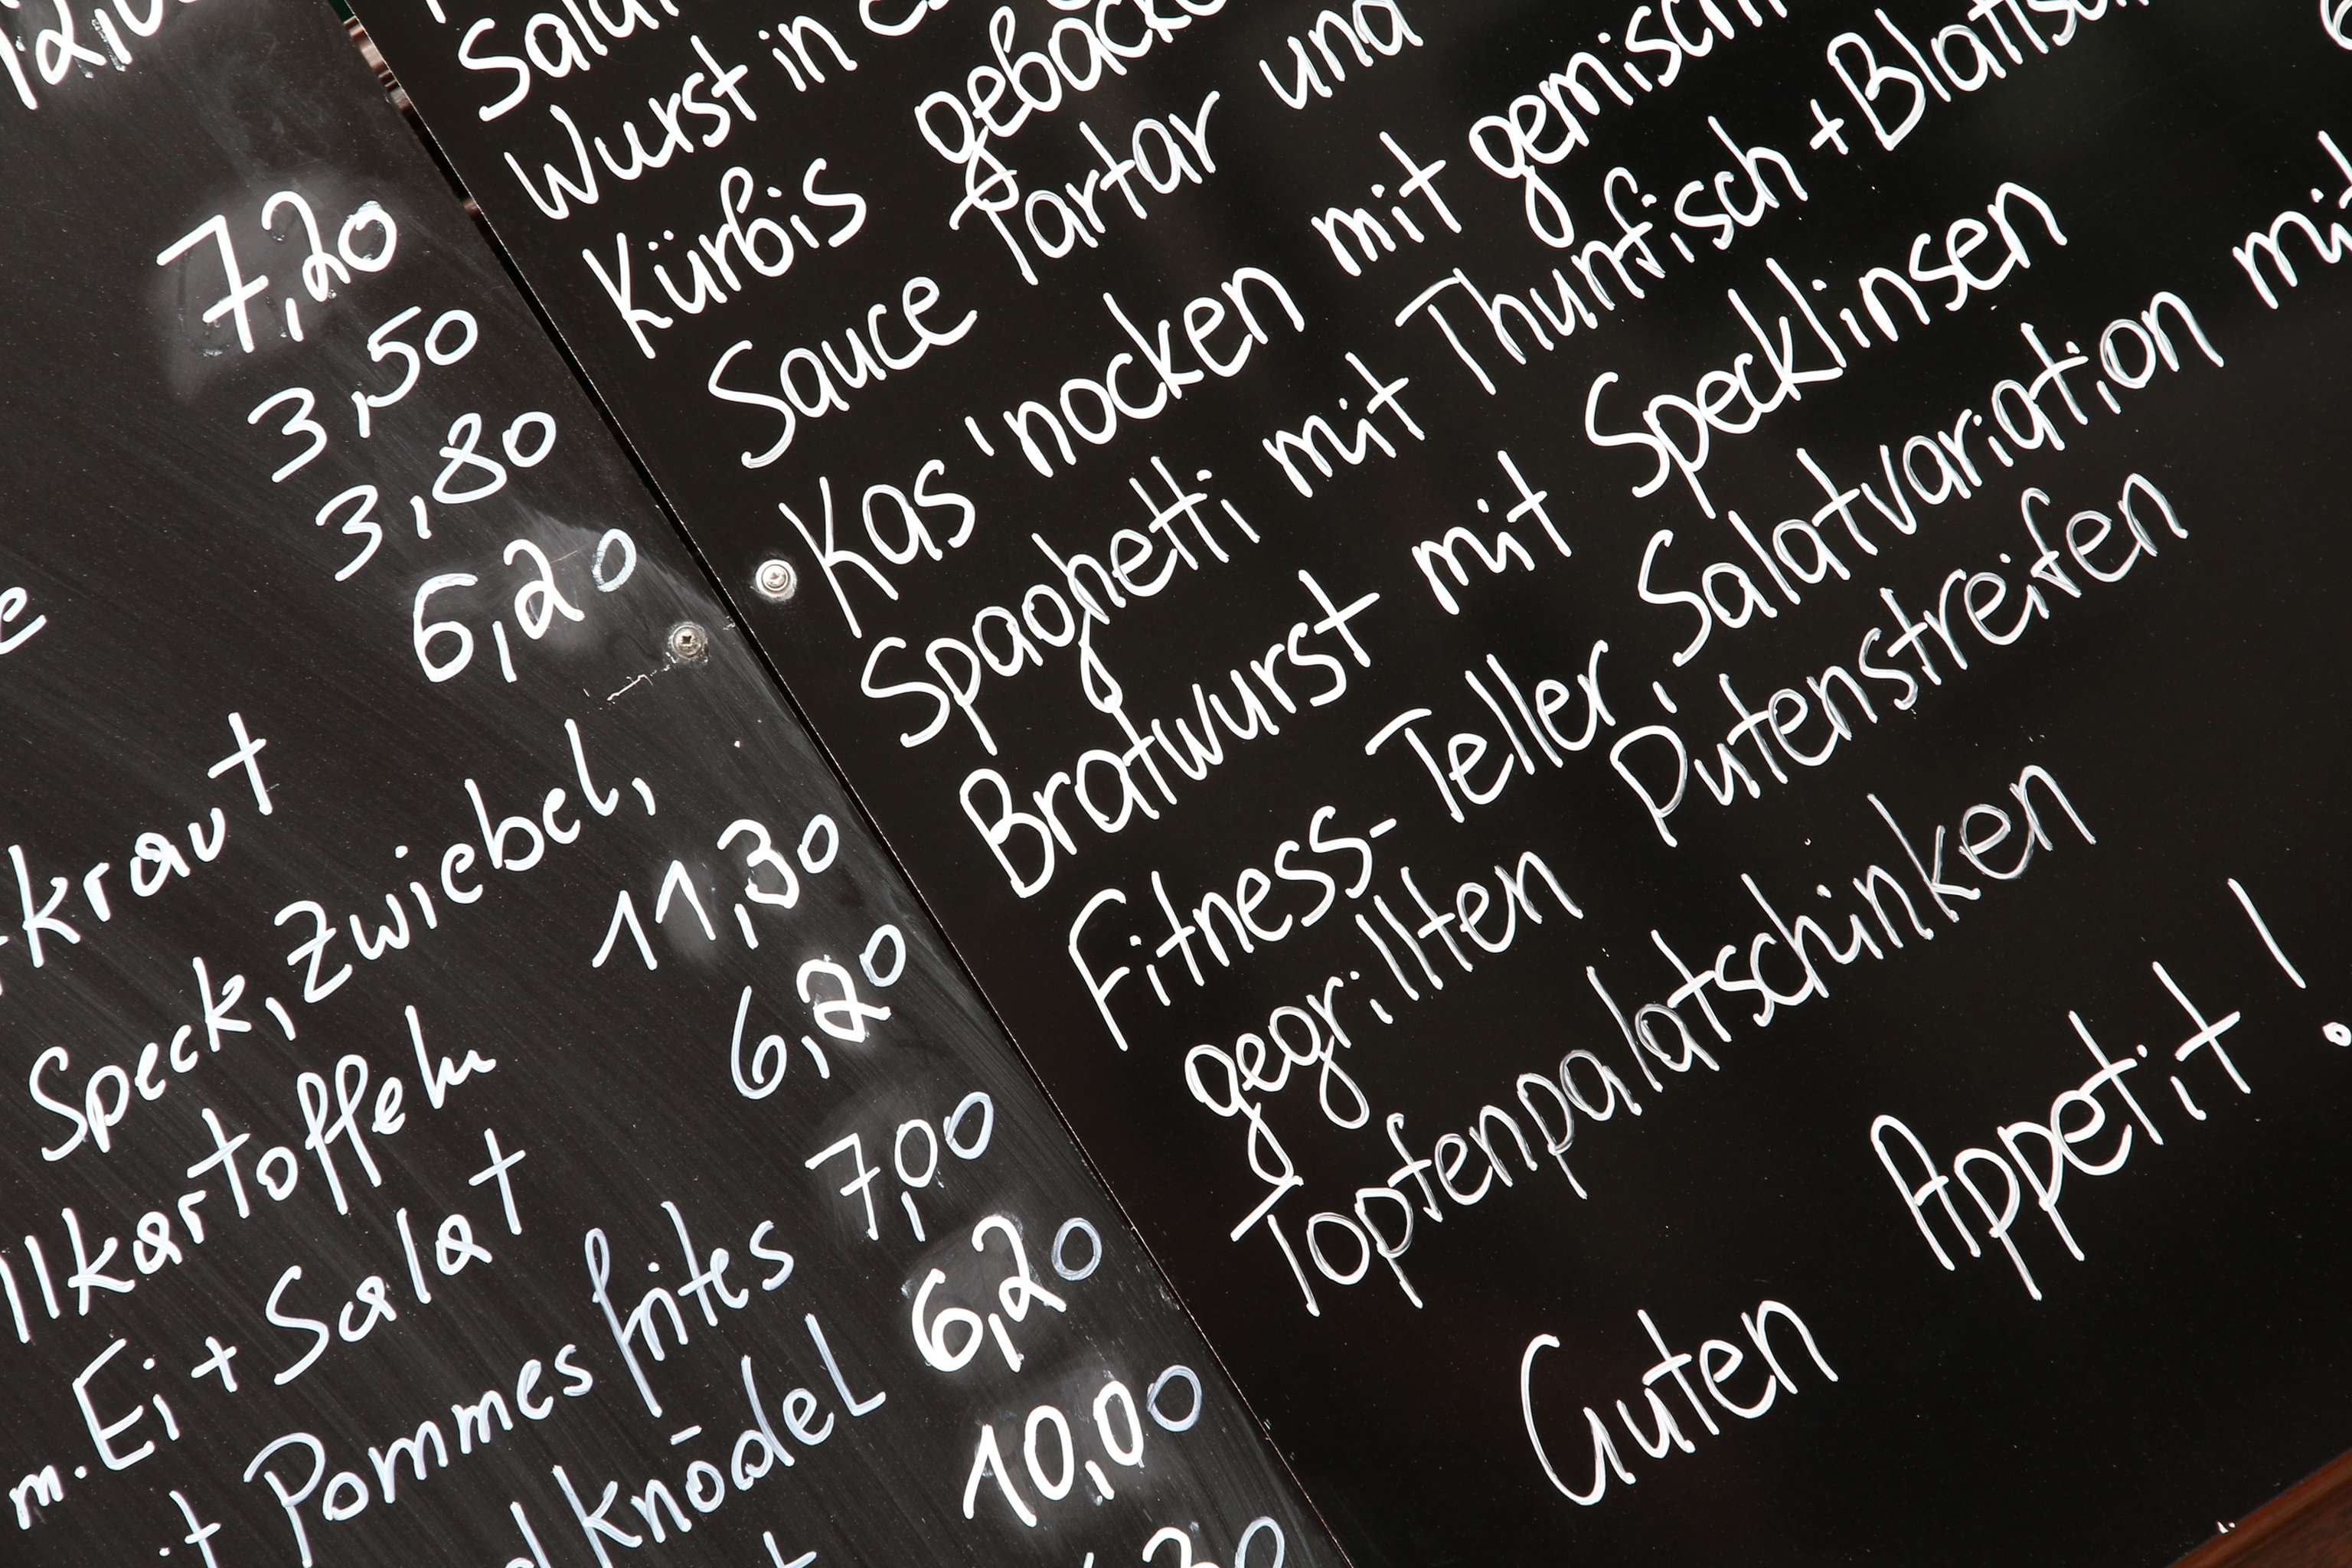 7,20
3,50
3,80
6,20
kraut
Speck, Zwiebel,
11,30
kartoffeln
6,20
m. Ei + Salat
7,00
Pommes frites
6,20
knödel
10,00
30
Wurst in
Kürbis
Sauce Tartar und
Kas'nocken mit
Spaghetti mit Thunfisch +
Bratwurst mit Specklinsen
Fitness-Teller, Salatvariation mit
gegrillten Putenstreifen
Topfenpalatschinken
Guten Appetit!